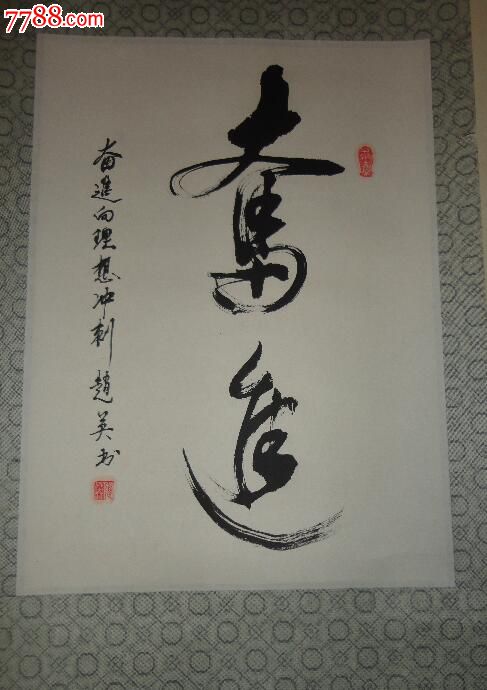 7788.com
奮進
奋進向理想冲刺 趙英书